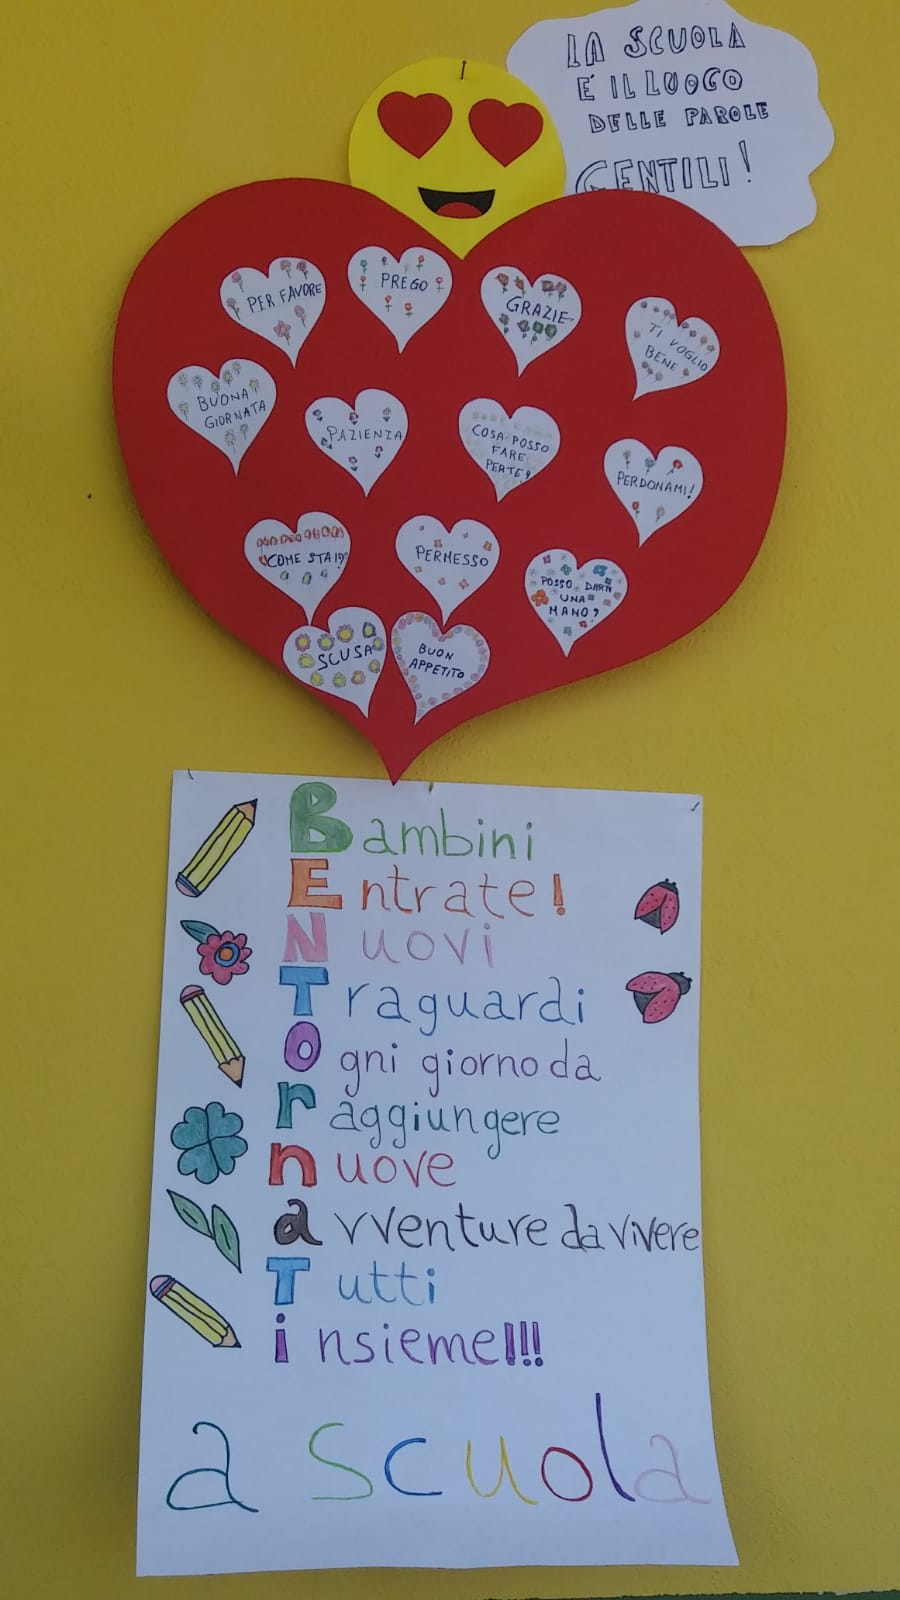 LA SCUOLA
E' IL LUOGO
DELLE PAROLE
GENTILI!
PER FAVORE
PREGO
GRAZIE
TI VOGLIO
BENE
BUONA
GIORNATA
PAZIENZA
COSA POSSO
FARE
PER TE?
PERDONAMI!
COME STAI?
PERMESSO
POSSO DARTI
UNA
MANO?
SCUSA
BUON
APPETITO
Bambini
Entrate!
Nuovi
Traguardi
Ogni giorno da
raggiungere
nuove
avventure da vivere
Tutti
insieme!!!
a scuola